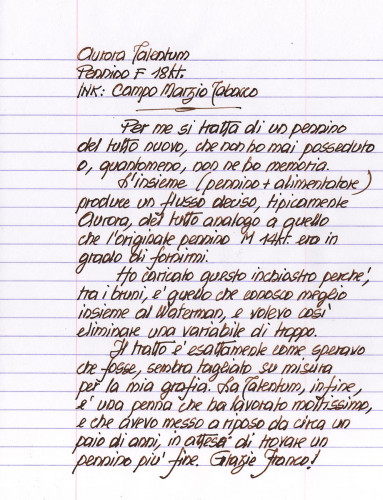 Aurora Talentum
Pennino F 18kt.
INK: Campo Marzio Tabacco
Per me si tratta di un pennino
del tutto nuovo, che non ho mai posseduto
o, quantomeno, non ne ho memoria.
L'insieme (pennino + alimentatore)
produce un flusso deciso, tipicamente
Aurora, del tutto analogo a quello
che l'originale pennino M 14kt. era in
grado di fornirmi.
Ho caricato questo inchiostro perché,
tra i bruni, e' quello che conosco meglio
insieme al Waterman, e volevo così
eliminare una variabile di troppo.
Il tratto e' esattamente come speravo
che fosse, sembra tagliato su misura
per la mia grafia. La Talentum, infine,
e' una penna che ha lavorato moltissimo,
e che avevo messo a riposo da circa un
paio di anni, in attesa di trovare un
pennino piu' fine. Grazie Franco!